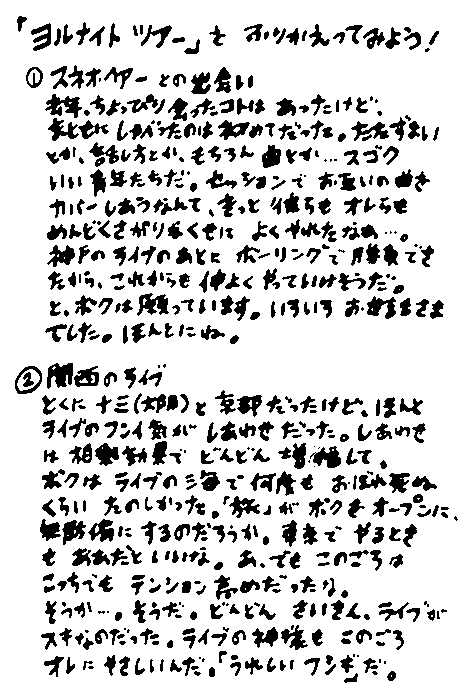 「ヨルナイト ツアー」を ふりかえってみよう!
① スネオヘアー との出会い
去年、ちょっぴり会ったコトは あったけど、
まともに しゃべったのは初めてだった。たたずまい
とか、話し方とか、もちろん 曲とか…スゴク
いい青年たちだ。セッションで お互いの曲を
カバーしあうなんて、きっと 彼らも オレらも
めんどくさがりなくせに よくやれたなぁ…。
神戸のライブのあとに ボーリングで 勝負でき
たから、これからも 仲よく やっていけそうだ。
と、ボクは願っています。いろいろ お世話さま
でした。ほんとにね。
② 関西のライブ
とくに 十三(大阪)と 京都だったけど、ほんと
ライブのフンイ気が しあわせ だった。しあわせ
は 相乗効果で どんどん 増幅して、
ボクは ライブの海で 何度も おぼれ死ぬ
くらい たのしかった。「旅」が ボクを オープンに、
無防備に するのだろうか。東京で やるとき
も ああだと いいな。あ、でも このごろは
こっちでも テンション 高めだったな。
そうか…。そうだ。どんどん さいきん、ライブが
スキなのだった。ライブの神様も このごろ
オレに やさしいんだ。「うれしい フシギ」だ。